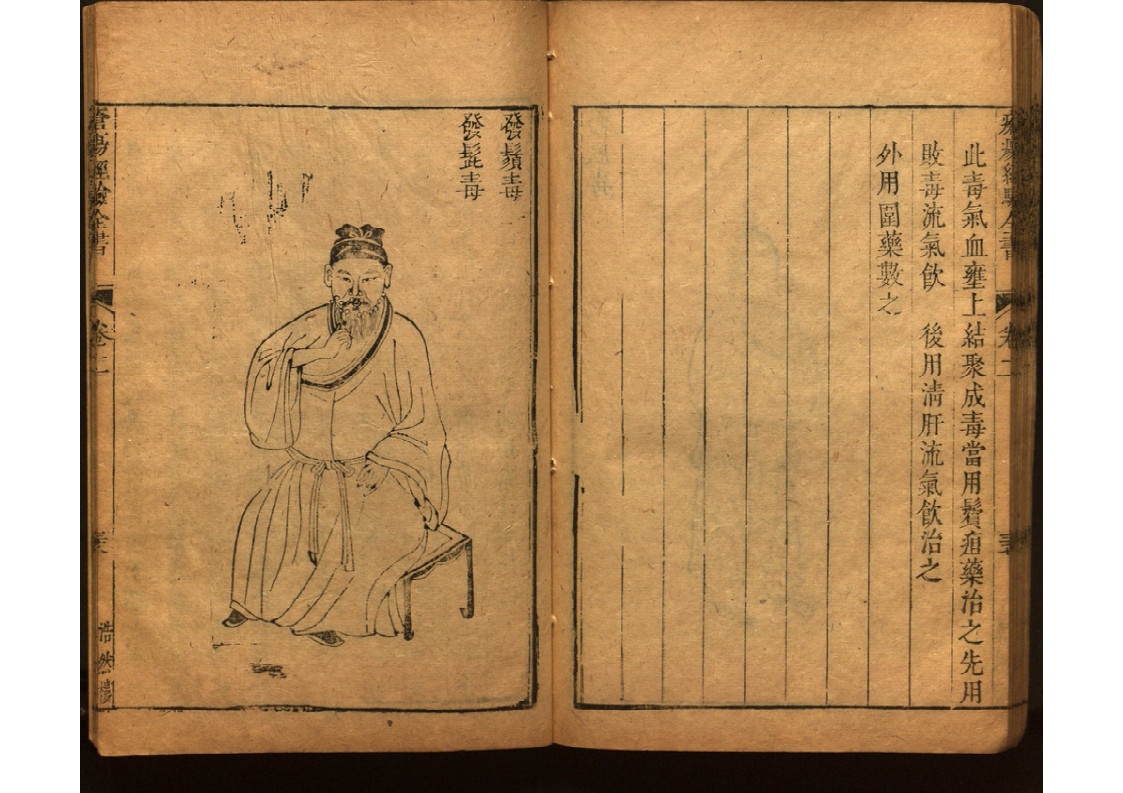 此毒氣血壅上結聚成毒當用鬢疽藥治之先用
敗毒流氣飲　後用清肝流氣飲治之
外用圍藥數之
發鬚毒
發髭毒
瘡瘍經驗全書
卷二
浩然樓